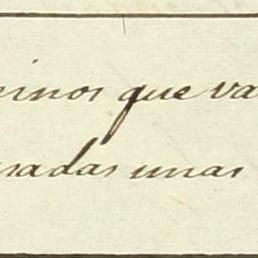 minos que va
sadas unas